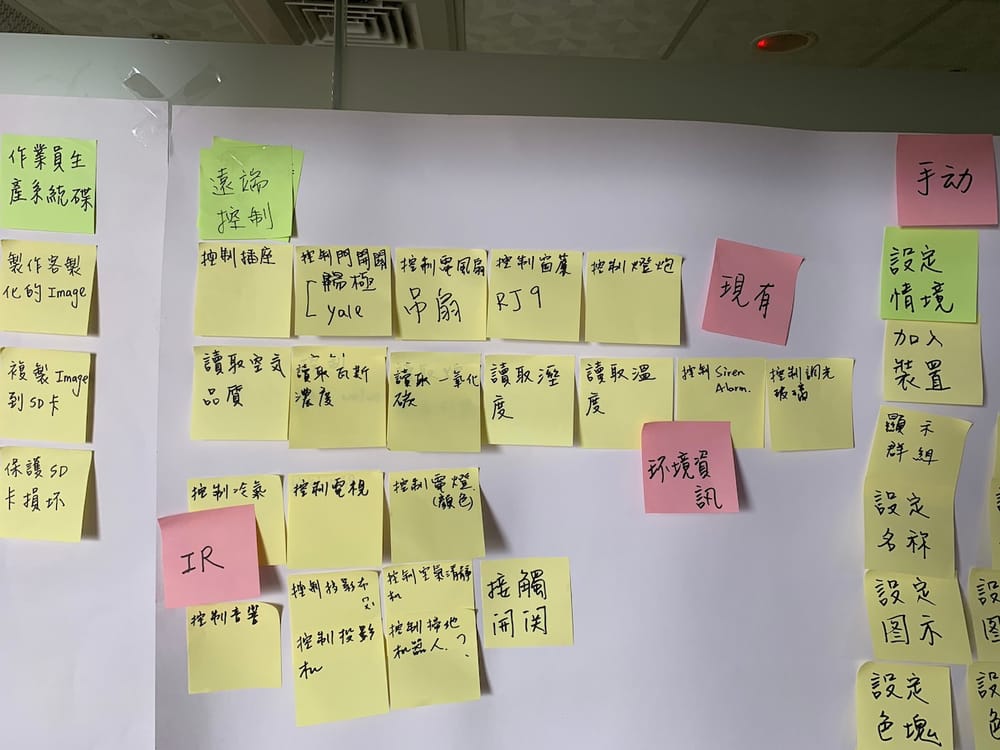 作業員生
產系統碟
製作客製
化的Image
複製Image
到SD卡
保護SD
卡損坏
遠端
控制
控制插座
控制門開關
觸極
yale
控制電風扇
吊扇
控制窗簾
RJ9
控制燈炮
現有
讀取空氣
品質
讀取瓦斯
濃度
讀取一氧化
碳
讀取溼
度
讀取溫
度
控制Siren
Alarm.
控制調光
玻璃
环境資
訊
控制冷氣
控制電視
控制電燈
(顏色)
IR
控制音響
控制投影
控制投影
机
控制空氣清靜
机
控制掃地
机器人?
接觸
開関
手动
設定
情境
加入
裝置
顯示
群組
設定
名称
設定
图示
設定
色塊
設
図
設
色